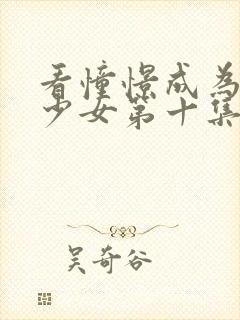 看憧憬成為
少女第十集
吴奇谷